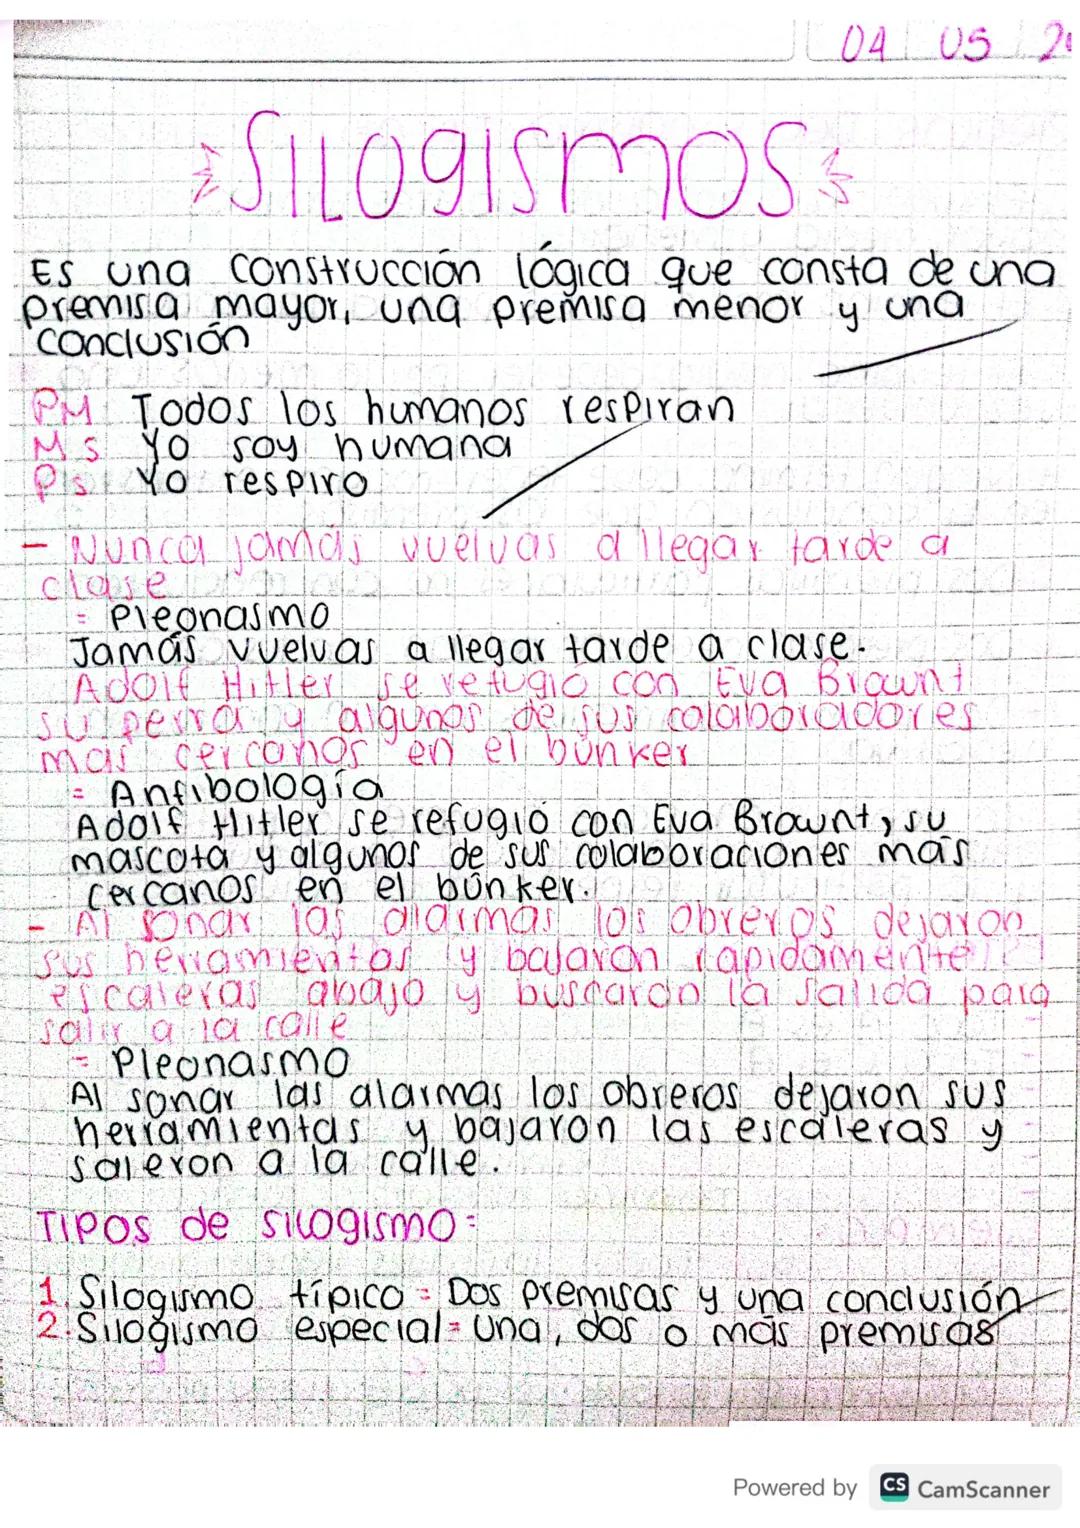 04 05 2
SILOgISMOS
Es una construcción lógica que consta de una
premisa mayor, una premisa menor y una
conclusión
PM Todos los humanos respiran
M s Yo soy humana
P s Yo respiro
- Nunca jamás vuelvas a llegar tarde a
clase
= Pleonasmo
Jamás vuelvas a llegar tarde a clase.
Adolf Hitler se refugió con Eva Brownt
su perra y algunos de sus colaboradores
mas cercanos en el búnker
= Anfibología
Adolf Hitler se refugió con Eva Brownt, su
mascota y algunos de sus colaboraciones más
cercanos en el búnker.
- Al sonar las alarmas los obreros dejaron
sus herramientas y bajaron rapidamente
escaleras abajo y buscaron la salida para
salir a la calle
= Pleonasmo
Al sonar las alarmas los obreros dejaron sus
herramientas y bajaron las escaleras y
saleron a la calle.
TIPOS de silogismo:
1. Silogismo típico = Dos premisas y una conclusión
2. Silogismo especial = Una, dos o más premisas
Powered by CS CamScanner